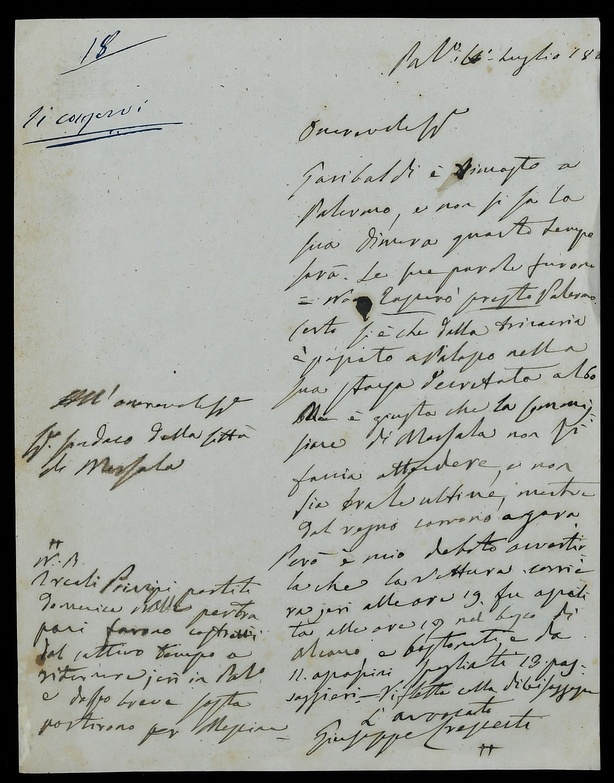 18
Si conservi
Pal.º Luglio 18
Onorevole Sigr
Garibaldi è rimasto a
Palermo, e non si sa la
sua dimora quanto tempo
sarà. Le sue parole furono
= Non presto Palermo
certo si è che dalla trinacria
è passato a Palazzo nella
sua stanza decretata al 60
Ma è giusto che la Commis
sione di Marsala non si
faccia attendere, e non
sia tra le ultime, mentre
dal regno corrono a gara
Però è mio debito avvertir
la che la vettura corrie
ra jeri alle ore 19. fu assali
ta alle ore 19 nel bosco di
alcamo e bastonati e da
11. assassini spogliati 13. pas
saggieri. Rifletta ella
L'avvocato
Giuseppe
All'onorevole Sigr
Sr. Sindaco della Città
di Marsala
N. B.
I reali Principi partiti
domenica
pani furono costretti
dal cattivo tempo a
ritornare jeri in Palº
e dopo breve sosta
partirono per Messina